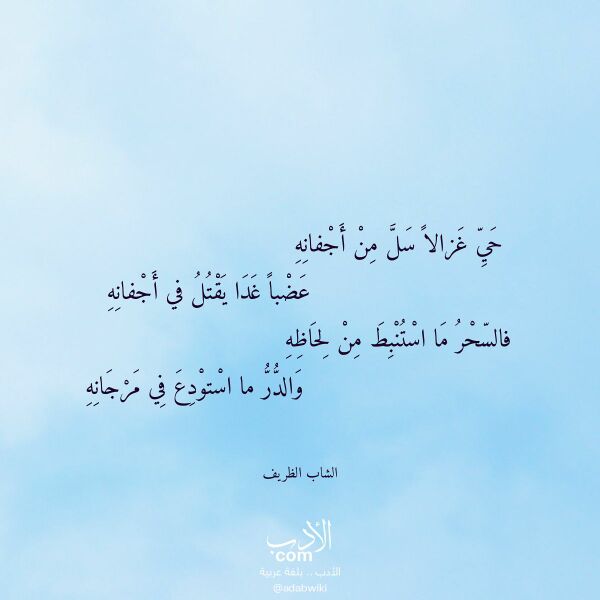 حَيِّ غَزالاً سَلَّ مِنْ أَجْفانِهِ
عَضْباً غَدَا يَقْتُلُ في أَجْفانِهِ
فالسّحْرُ مَا اسْتُنْبِطَ مِنْ لِحَاظِهِ
وَالدُّرُّ ما اسْتوْدِعَ فِي مَرْجَانِهِ
الشاب الظريف
الأدب
.com
الأدب .. بلغة عربية
@adabwiki